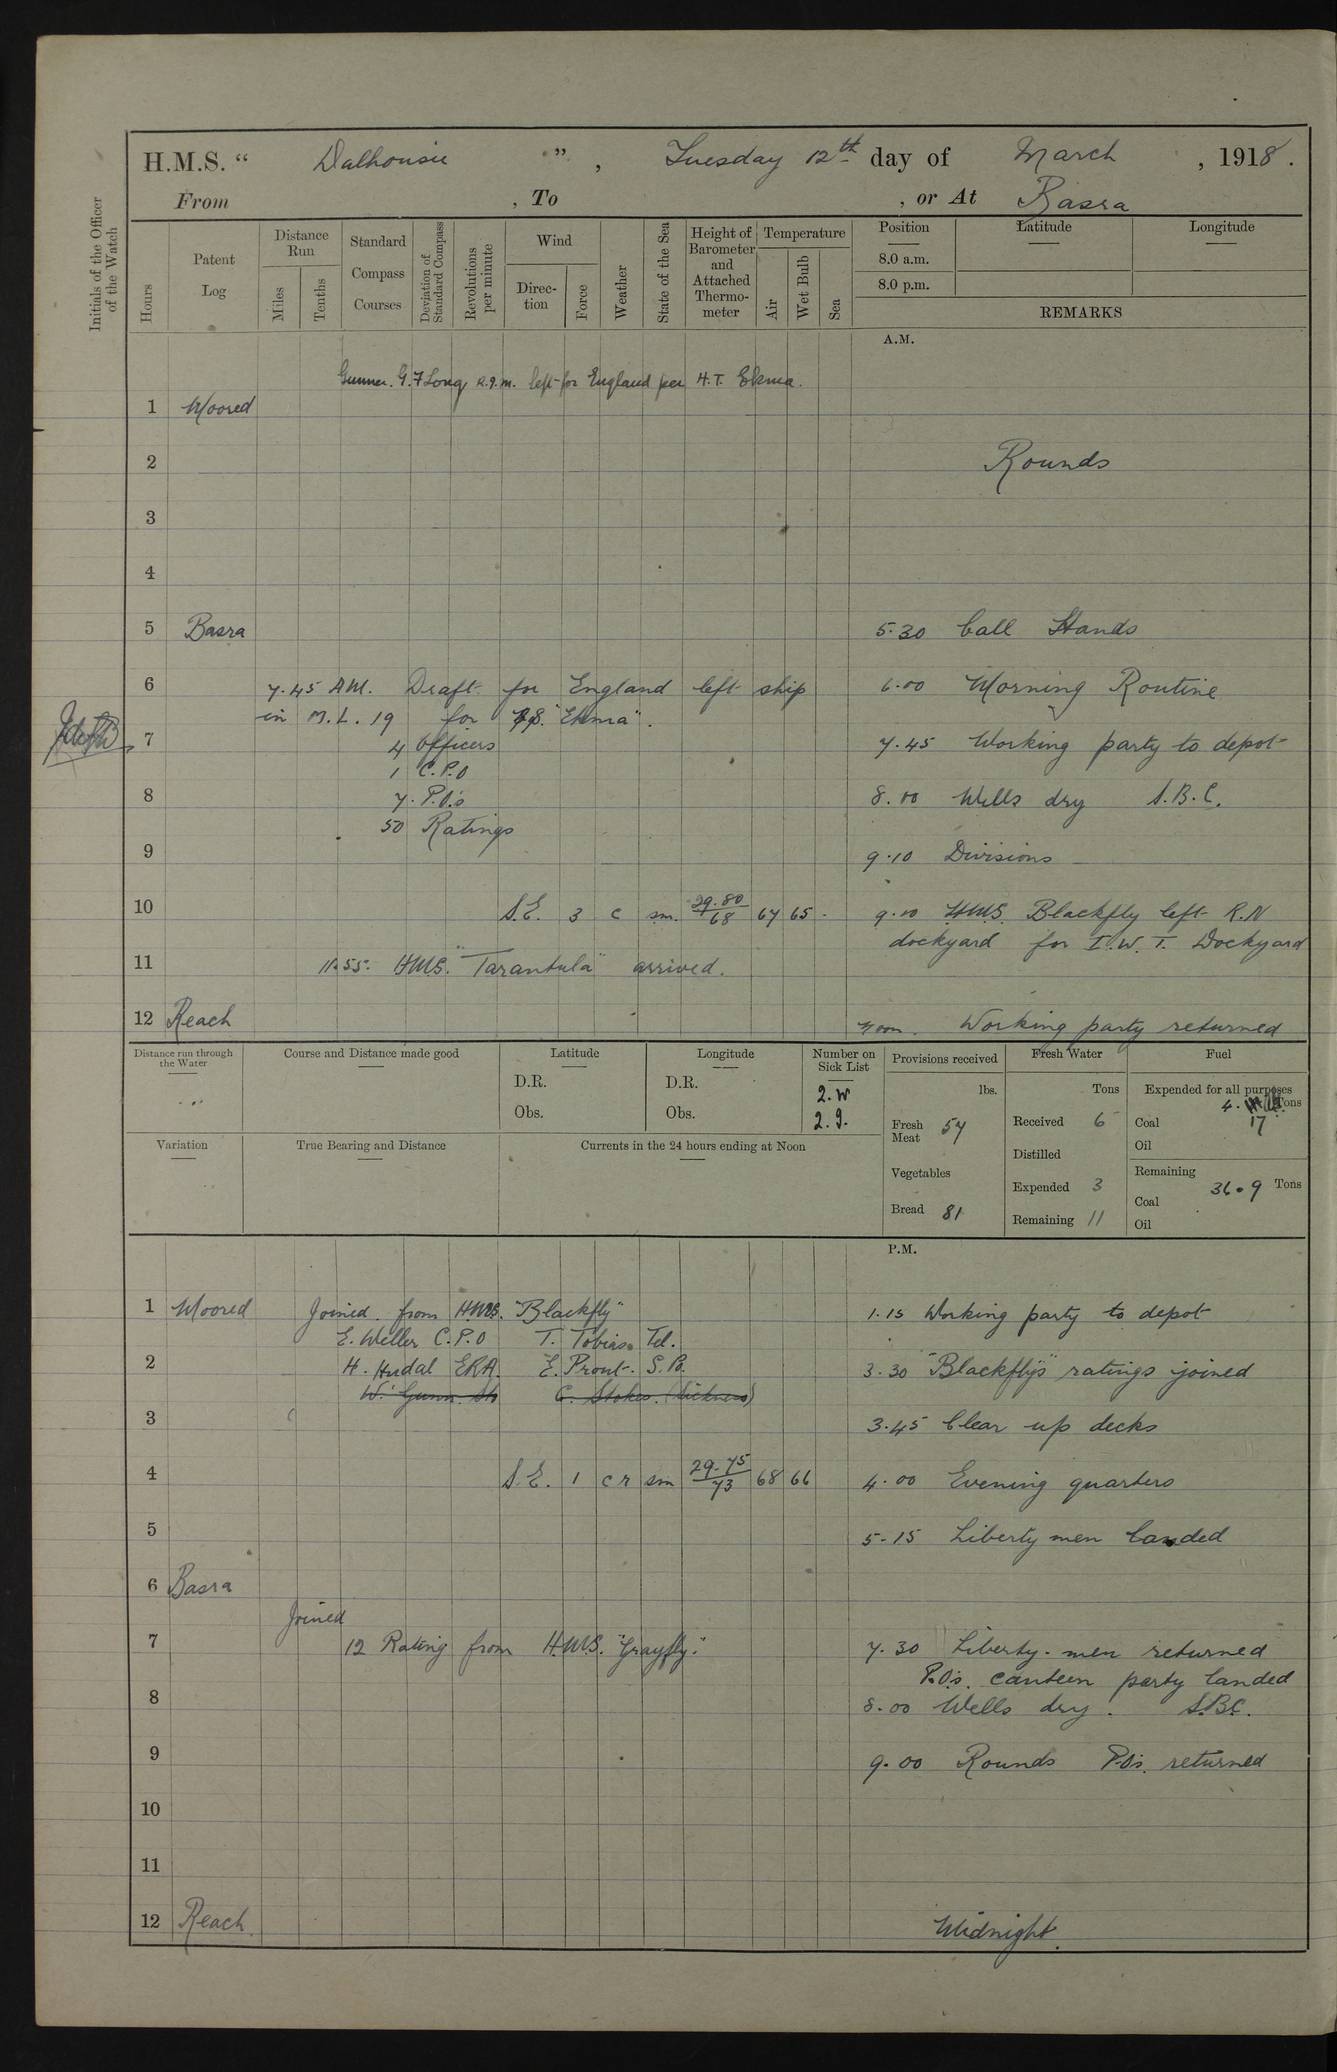 H.M.S. “ Dalhousie ” , Tuesday 12th day of March , 1918 .
From , To , or At Basra
Initials of the Officer of the Watch
Hours
Patent Log
Distance Run
Miles
Tenths
Standard Compass Courses
Deviation of Standard Compass
Revolutions per minute
Wind
Direc-tion
Force
Weather
State of the Sea
Height of Barometer and Attached Thermo-meter
Temperature
Air
Wet Bulb
Sea
Position
Latitude
Longitude
8.0 a.m.
8.0 p.m.
REMARKS
A.M.
Gunner. G. F Long R.I.M. left for England per H.T. Ekma.
1 Moored
2 Rounds
3
4
5 Basra 5.30 Call Hands
6 7.45 AM. Draft for England left ship 6.00 Morning Routine
in M.L. 19 for "Ekma".
7 4 Officers 7.45 Working party to depot
1 C.P.O
8 7. P.O.s 8.00 Wells dry S.B.C.
50 Ratings
9 9.10 Divisions
10 S.E. 3 c sm. 29.80/68 67 65 9.10 H.M.S. Blackfly left R.N
dockyard for I.W.T. Dockyard
11 11.55. H.M.S. "Tarantula" arrived.
12 Reach Noon. Working party returned
Distance run through the Water
Course and Distance made good
Latitude
D.R.
Obs.
Longitude
D.R.
Obs.
Number on Sick List
2. W
2. I.
Provisions received
lbs.
Fresh Meat 57
Vegetables
Bread 81
Fresh Water
Tons
Received 6
Distilled
Expended 3
Remaining 11
Fuel
Expended for all purposes
4. Tons
Coal 17
Oil
Remaining
36.9 Tons
Coal
Oil
Variation
True Bearing and Distance
Currents in the 24 hours ending at Noon
P.M.
1 Moored Joined from H.M.S. "Blackfly" 1.15 Working party to depot
E. Weller C.P.O T. Tobias Tel.
2 H. Hudal ERA. E. Prout. S. Po. 3.30 "Blackfly's" ratings joined
W. Gunn. Sto C. Stokes. (Sickness)
3 3.45 Clear up decks
4 S.E. 1 c r sm 29.75/73 68 66 4.00 Evening quarters
5 5.15 Liberty men landed
6 Basra
Joined
7 12 Rating from H.M.S. "Grayfly." 7.30 Liberty-men returned
P.O's. canteen party landed
8 8.00 Wells dry. S.B.C.
9 9.00 Rounds P.O's. returned
10
11
12 Reach Midnight.